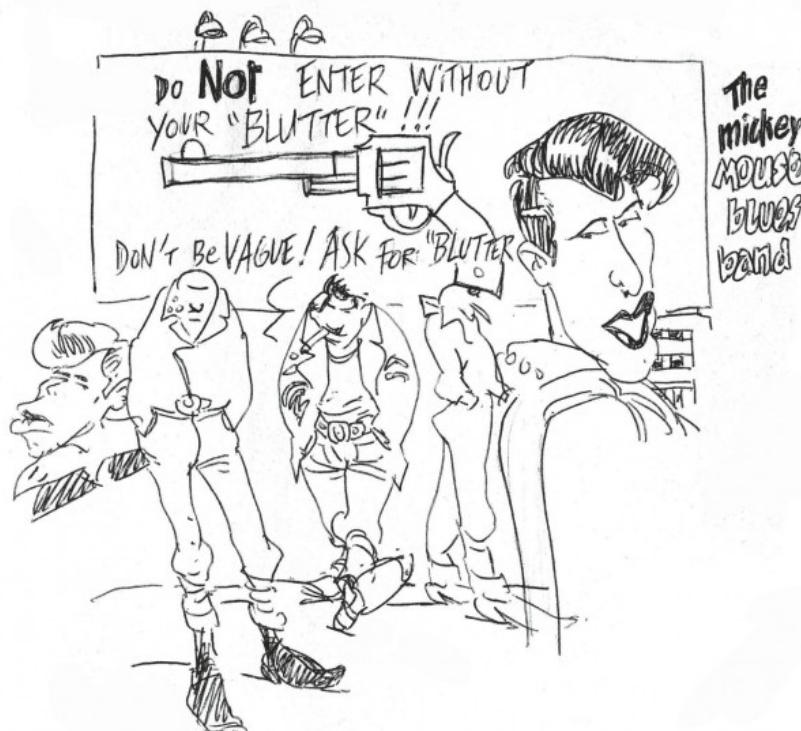 Do Not ENTER WITHOUT
YOUR "BLUTTER" !!!
DON'T Be VAGUE! ASK FOR "BLUTTER
The
mickey
MOUSE
blues
band